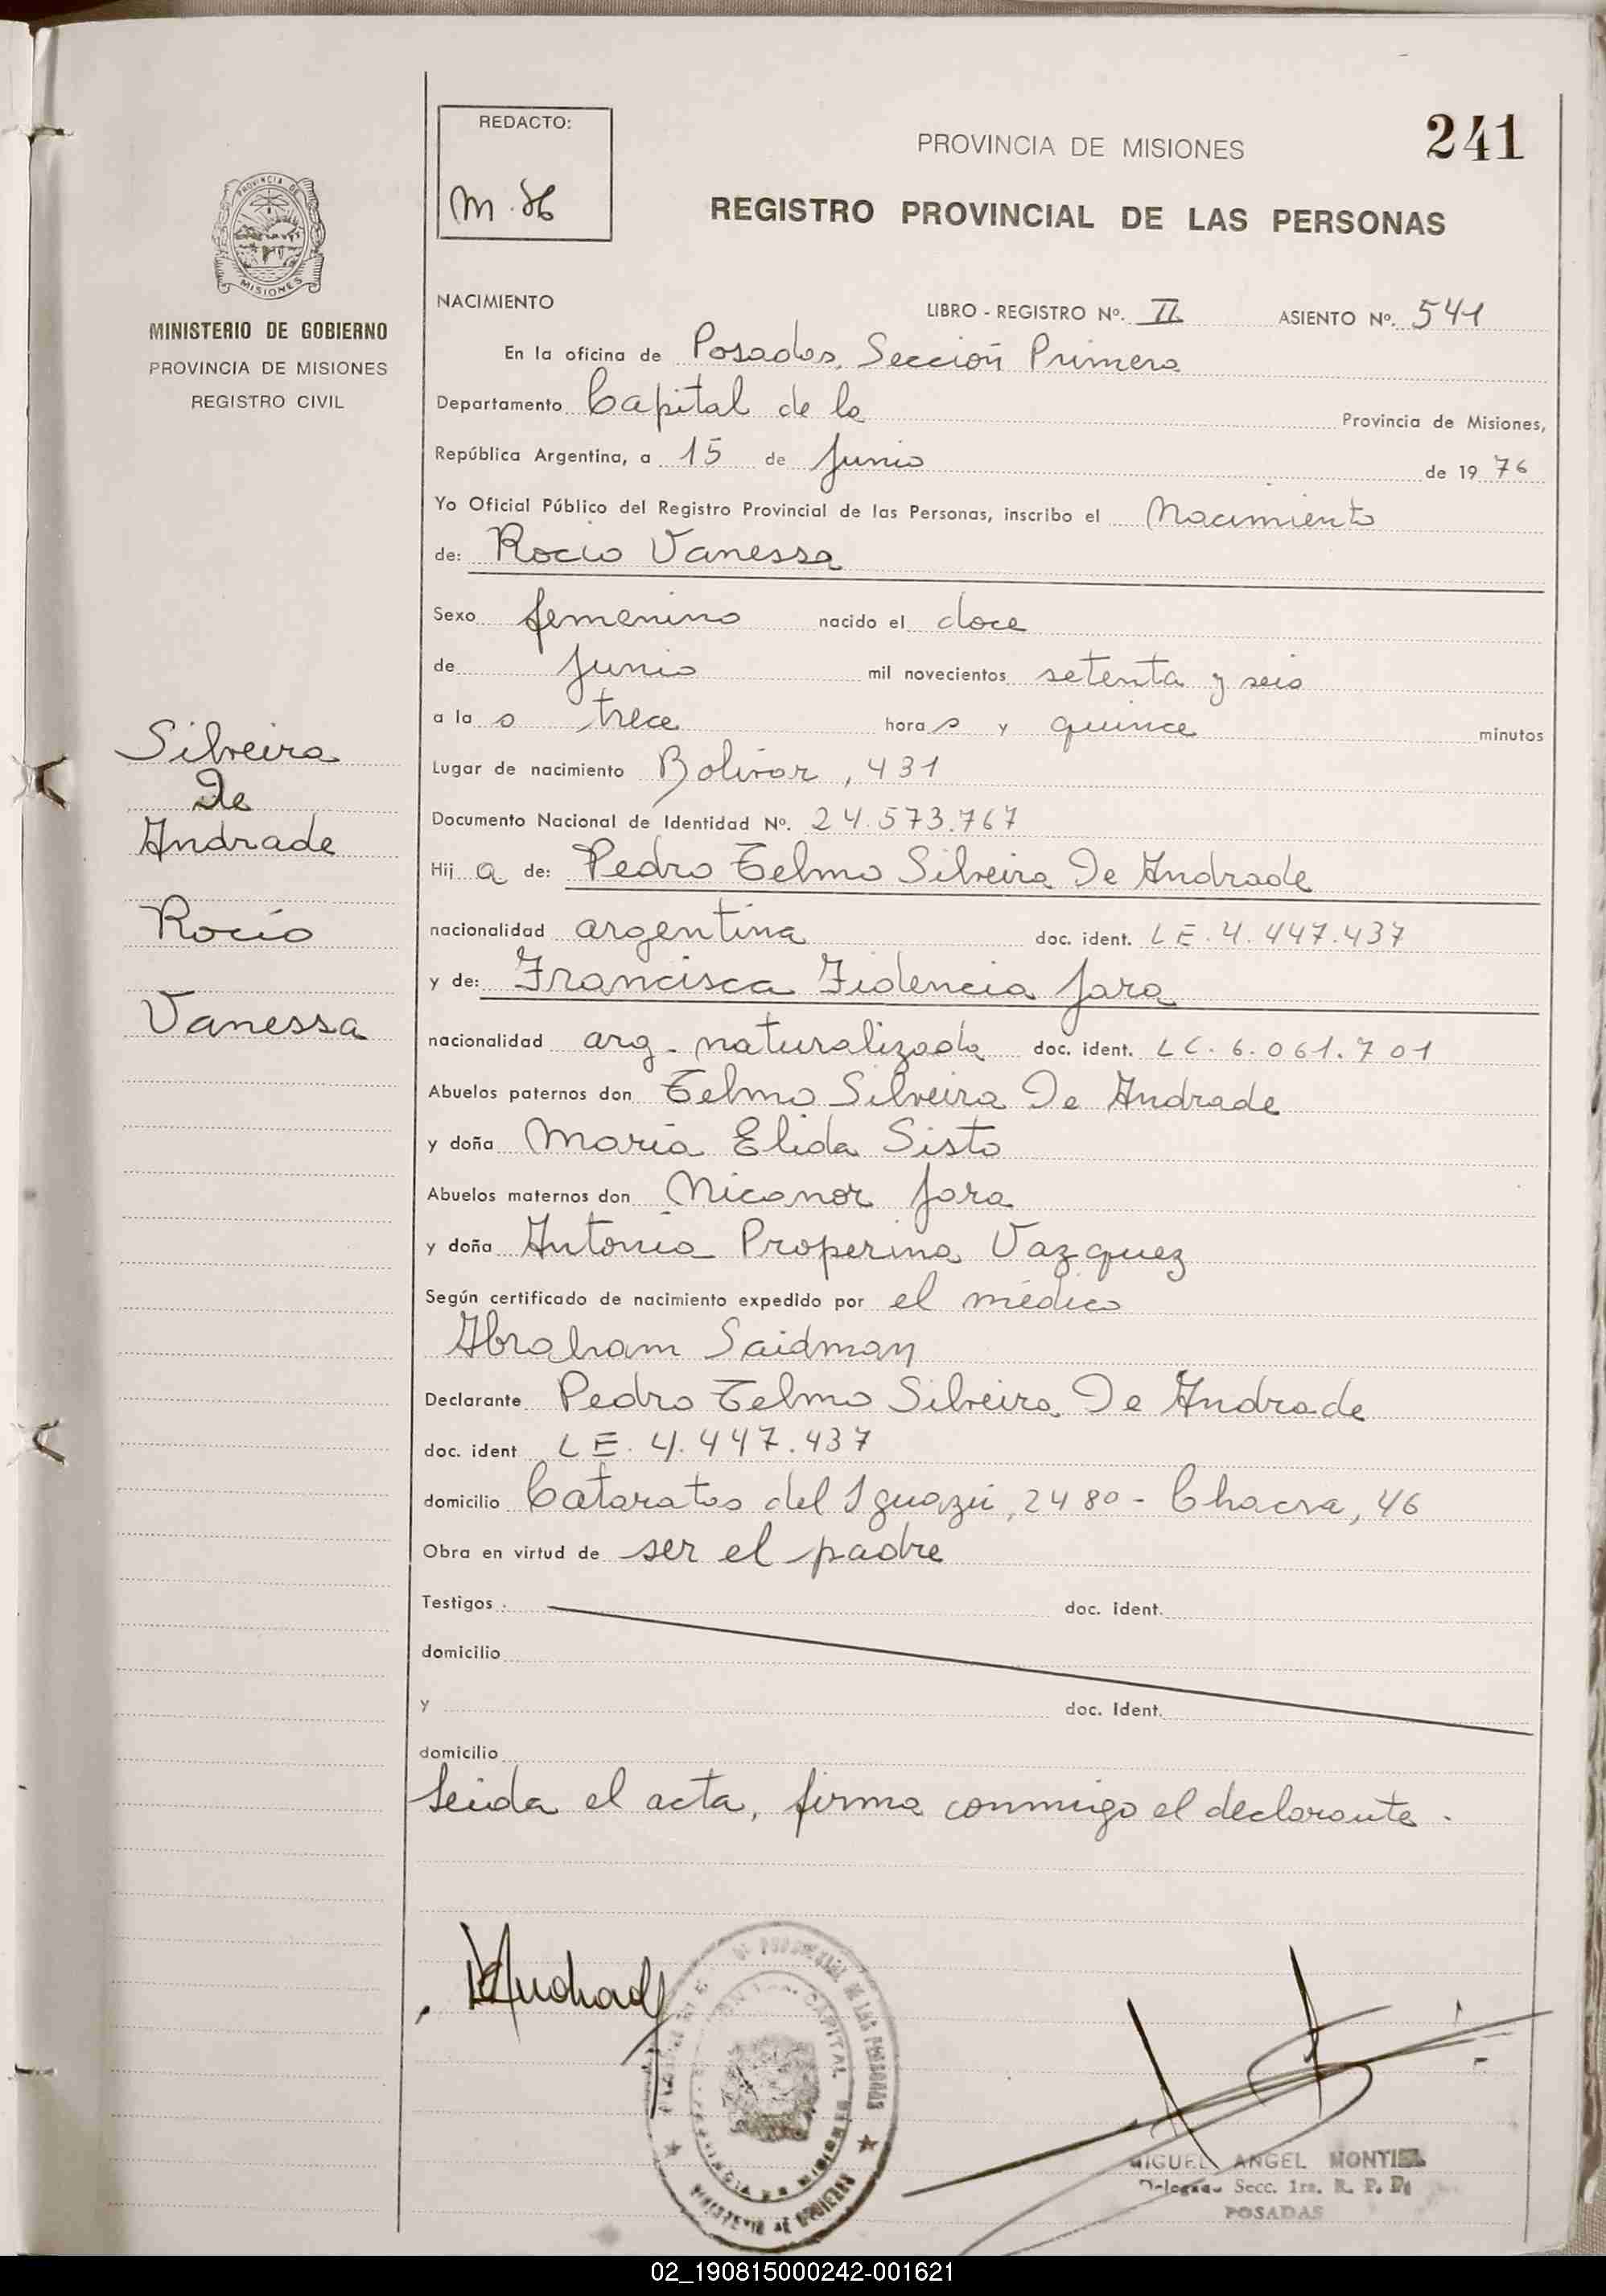 241
REDACTO:
PROVINCIA DE MISIONES
REGISTRO PROVINCIAL DE LAS PERSONAS
PROVINCIA DE
MISIONES
MINISTERIO DE GOBIERNO
PROVINCIA DE MISIONES
REGISTRO CIVIL
NACIMIENTO LIBRO - REGISTRO Nº. II ASIENTO Nº. 541
En la oficina de Posadas, Sección Primera
Departamento Capital de la Provincia de Misiones,
República Argentina, a 15 de Junio de 19 76
Yo Oficial Público del Registro Provincial de las Personas, inscribo el Nacimiento
de: Rocio Vanessa
Sexo femenino nacido el doce
de Junio mil novecientos setenta y seis
a la s trece hora s y quince minutos
Lugar de nacimiento Bolivar, 431
Documento Nacional de Identidad Nº. 24.573.767
Hij a de: Pedro Telmo Silveira De Andrade
nacionalidad argentina doc. ident. LE. 4.447.437
y de: Francisca Fidencia Jara
nacionalidad arg. naturalizada doc. ident. LC. 6.061.701
Abuelos paternos don Telmo Silveira De Andrade
y doña Maria Elida Sisto
Abuelos maternos don Nicanor Jara
y doña Antonia Properina Vazquez
Según certificado de nacimiento expedido por el médico
Abraham Saidman
Declarante Pedro Telmo Silveira De Andrade
doc. ident LE. 4.447.437
domicilio Cataratas del Iguazú, 2480 - Chacra, 46
Obra en virtud de ser el padre
Testigos doc. ident.
domicilio
y doc. ident.
domicilio
Leida el acta, firma conmigo el declarante.
Silveira
De
Andrade
Rocío
Vanessa
MIGUEL ANGEL MONTIEL
Delegado Secc. 1ra. R. P. P.
POSADAS
02_190815000242-001621